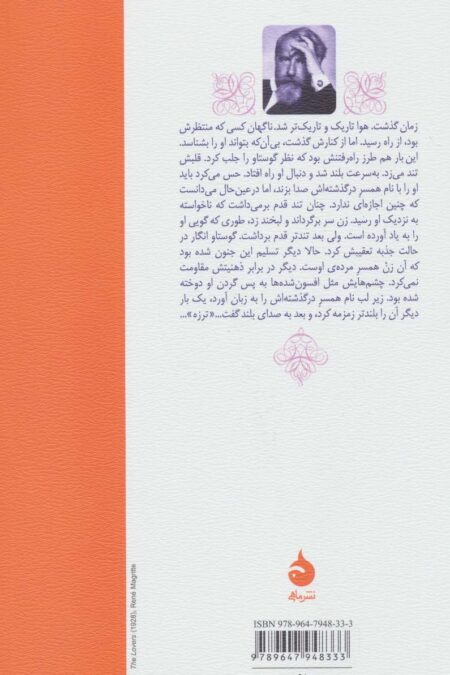 زمان گذشت. هوا تاریک و تاریک‌تر شد. ناگهان کسی که منتظرش
بود، از راه رسید. اما از کنارش گذشت، بی‌آن‌که بتواند او را بشناسد.
این بار هم طرز راه‌رفتنش بود که نظر گوستاو را جلب کرد. قلبش
تند می‌زد. به‌سرعت بلند شد و دنبال او راه افتاد. حس می‌کرد باید
او را با نام همسرِ درگذشته‌اش صدا بزند، اما در عین‌حال می‌دانست
که چنین اجازه‌ای ندارد. چنان تند قدم برمی‌داشت که ناخواسته
به نزدیک او رسید. زن سر برگرداند و لبخند زد، طوری که گویی او
را به یاد آورده است. ولی بعد تندتر قدم برداشت. گوستاو انگار در
حالت جذبه تعقیبش کرد. حالا دیگر تسلیم این جنون شده بود
که آن زنْ همسرِ مرده‌ی اوست. دیگر در برابر ذهنیتش مقاومت
نمی‌کرد. چشم‌هایش مثل افسون‌شده‌ها به پس گردن او دوخته
شده بود. زیر لب نام همسرِ درگذشته‌اش را به زبان آورد، یک بار
دیگر آن را بلندتر زمزمه کرد، و بعد به صدای بلند گفت...«ترزه»...
The Lovers (1928), René Magritte
نشر ماهی
ISBN 978-964-7948-33-3
9 789647 948333